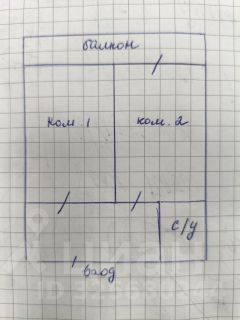 балкон
ком. 1
ком. 2
с/у
вход